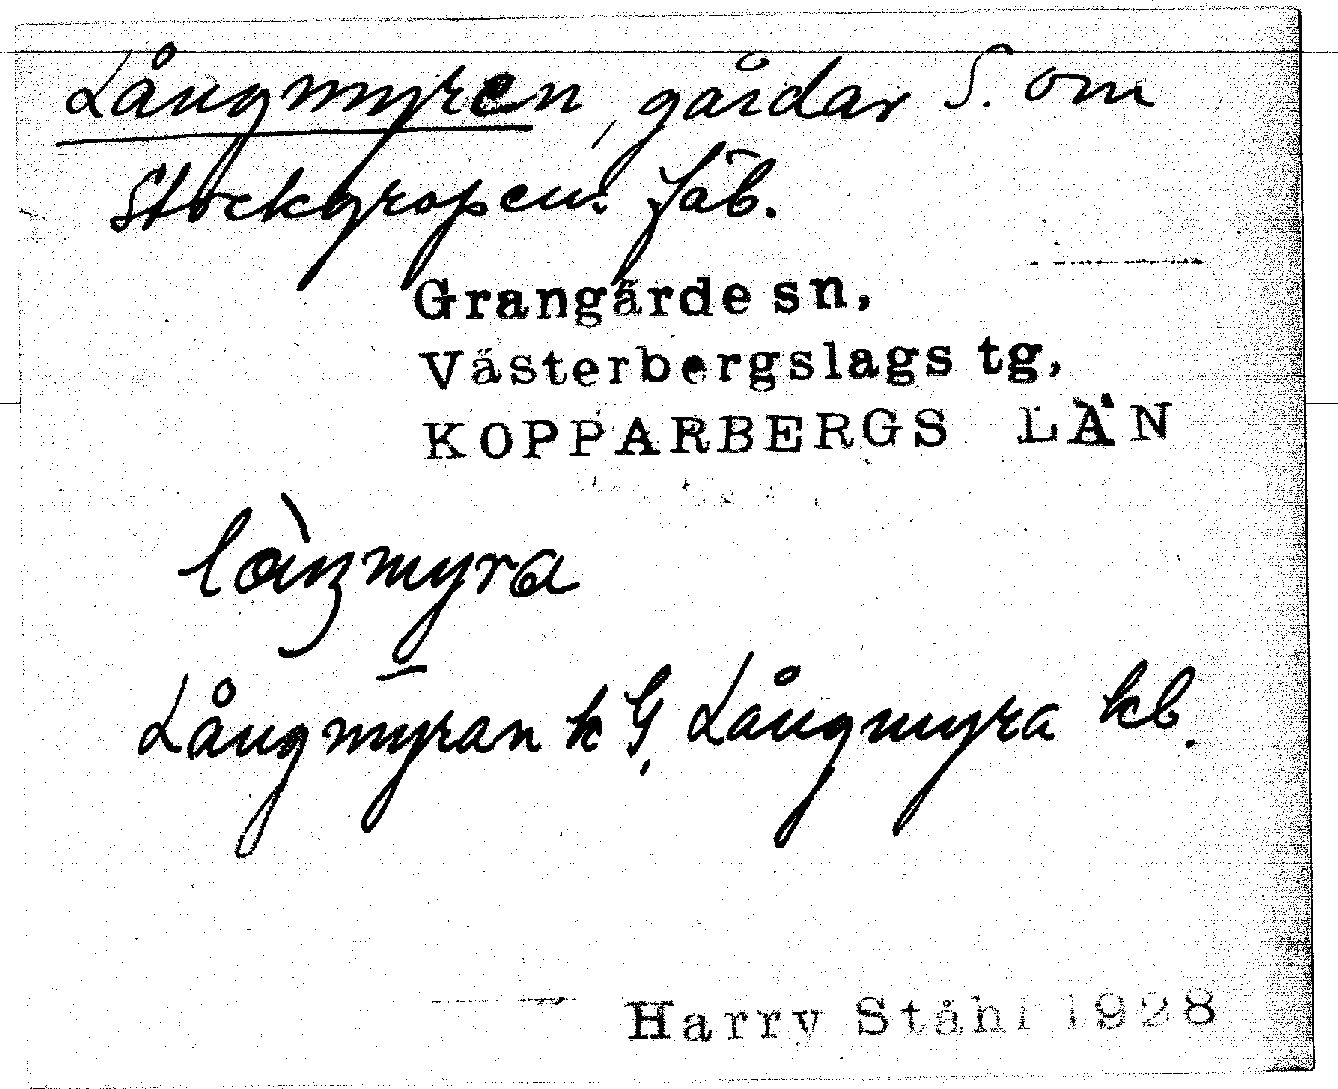 Långmyren, gårdar S. om
Stockgropens fäb.
Grangärde sn,
Västerbergslags tg,
KOPPARBERGS LÄN
låŋmyra
Långmyran k G, Långmyra kb.
Harry Ståhl 1928